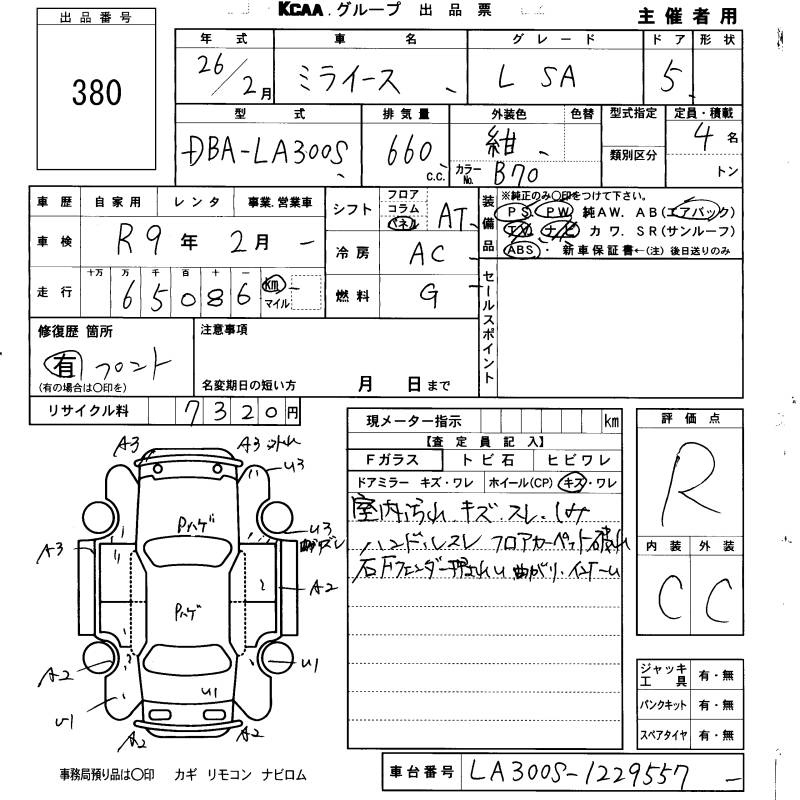 KCAA.グループ 出品票
主催者用
出品番号
380
年式 車名 グレード ドア 形状
26/2月 ミライース L SA 5
型式 排気量 外装色 色替 型式指定 定員・積載
DBA-LA300S 660 c.c. 紺 4名
カラーNo. B70 類別区分 トン
車歴 自家用 レンタ 事業.営業車
車検 R9年 2月
走行 十万 万 千 百 十 一
65086 km マイル
シフト フロア コラム パネル AT
冷房 AC
燃料 G
装備品 ※純正のみ○印をつけて下さい。
PS PW 純AW. AB(エアバック)
TV ナビ カワ. SR(サンルーフ)
ABS・新車保証書←(注) 後日送りのみ
セールスポイント
修復歴 箇所
有 フロント
(有の場合は○印を)
注意事項
名変期日の短い方 月 日まで
リサイクル料 7320円
現メーター指示 km
【査定員記入】
Fガラス トビ石 ヒビワレ
ドアミラー キズ・ワレ ホイール(CP) キズ・ワレ
室内汚れ キズ.スレ.シミ
ハンドルスレ フロアカーペット破れ
評価点
R
内装 外装
C C
A3 A3
U3
Pハゲ
U3
A3
A2
Pハゲ
A2
U1
U1
U1
A2 A2
ジャッキ工具 有・無
パンクキット 有・無
スペアタイヤ 有・無
事務局預り品は○印 カギ リモコン ナビロム
車台番号 LA300S-1229557